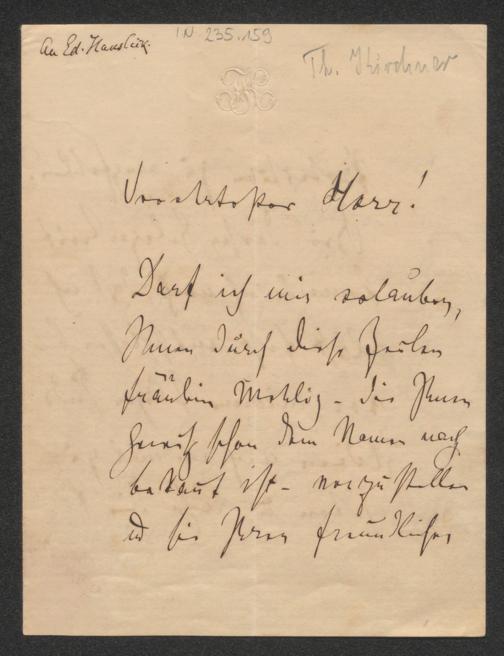 An Ed. Hanslick.
IN 235.159
Th. Kirchner
TK
Verehrtester Herr!
Darf ich mir erlauben,
Ihnen durch diese Zeilen
Fräulein Mehlig – die Ihnen
gewiß schon dem Namen nach
bekannt ist – vorzustellen
u sie Ihrer freundlichen